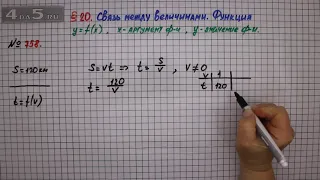 4 на 5 ми
§ 20. Связь между величинами. Функция
y = f(x), x - аргумент ф-и, y - значение ф-и.
№ 758.
S = 120 км
t = f(v)
S = vt ⇒ t = S/v, v ≠ 0
t = 120/v
v 1
t 120